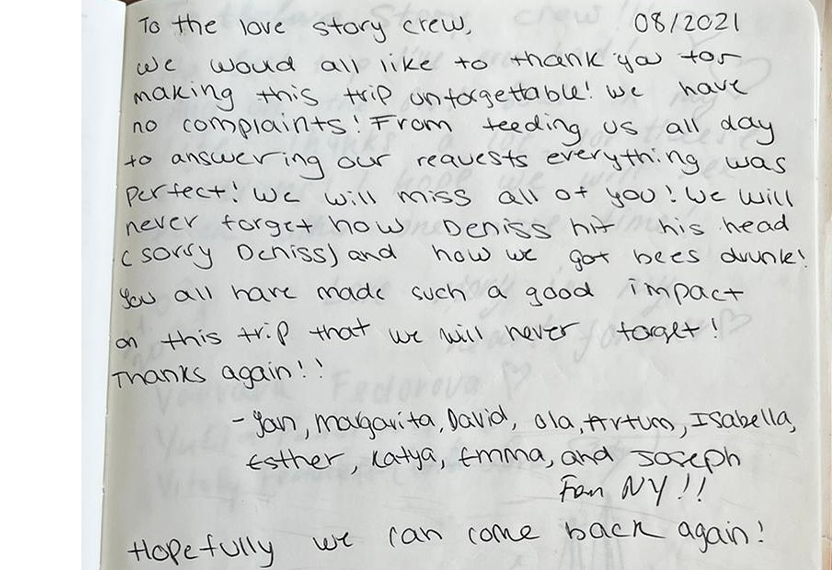 To the love story crew, 08/2021
We woud all like to thank you for
making this trip unforgettable! We have
no complaints! From feeding us all day
to answering our requests everything was
perfect! We will miss all of you! We will
never forget how Deniss hit his head
(sorry Deniss) and how we got bees drunk!
You all have made such a good impact
on this trip that we will never forget!
Thanks again!!
- Yan, Margarita, David, Ola, Artum, Isabella,
Esther, Katya, Emma, and Joseph
From NY!!
Hopefully we can come back again!